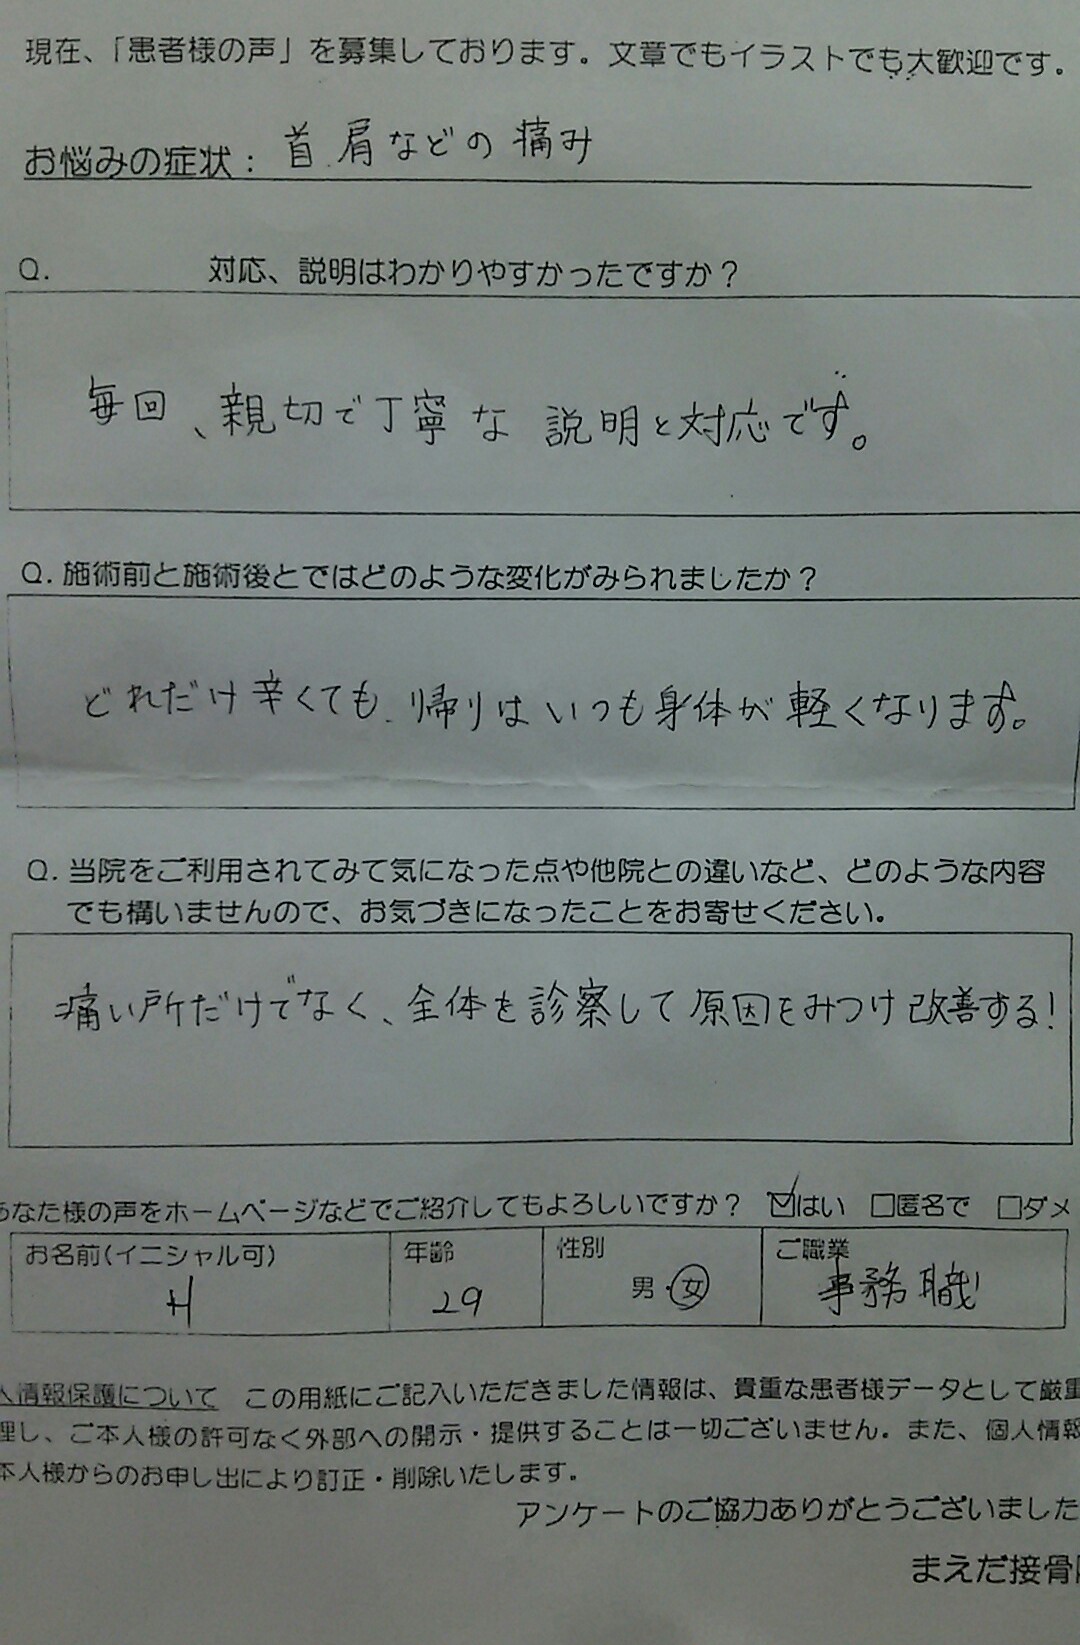 現在、「患者様の声」を募集しております。文章でもイラストでも大歓迎です。
お悩みの症状：首 肩などの痛み
Q. 対応、説明はわかりやすかったですか？
毎回、親切で丁寧な 説明と対応です。
Q. 施術前と施術後とではどのような変化がみられましたか？
どれだけ辛くても、帰りはいつも身体が軽くなります。
Q. 当院をご利用されてみて気になった点や他院との違いなど、どのような内容
でも構いませんので、お気づきになったことをお寄せください。
痛い所だけでなく、全体を診察して原因をみつけ改善する！
あなた様の声をホームページなどでご紹介してもよろしいですか？ ☑はい □匿名で □ダメ
お名前(イニシャル可) 年齢 性別 ご職業
H 29 男・女 事務職
人情報保護について この用紙にご記入いただきました情報は、貴重な患者様データとして厳重
理し、ご本人様の許可なく外部への開示・提供することは一切ございません。また、個人情報
本人様からのお申し出により訂正・削除いたします。
アンケートのご協力ありがとうございました
まえだ接骨